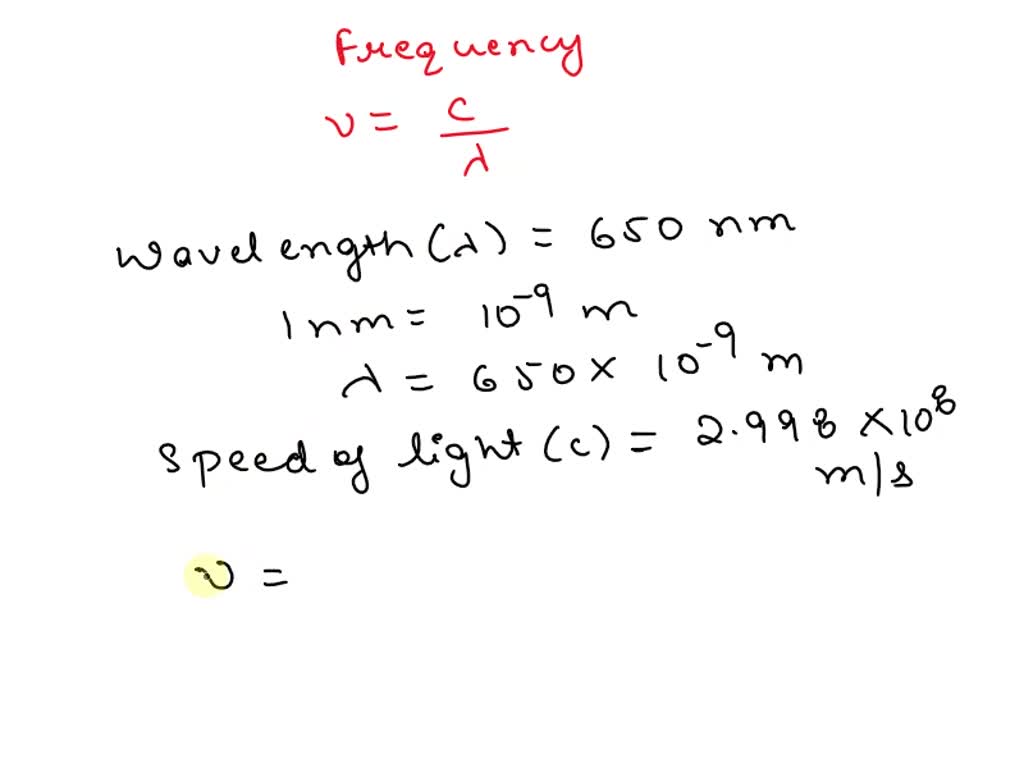 Frequency
ν = c/λ
Wavelength (λ) = 650 nm
1 nm = 10⁻⁹ m
λ = 650 × 10⁻⁹ m
Speed of light (c) = 2.998 × 10⁸
m/s
ν =